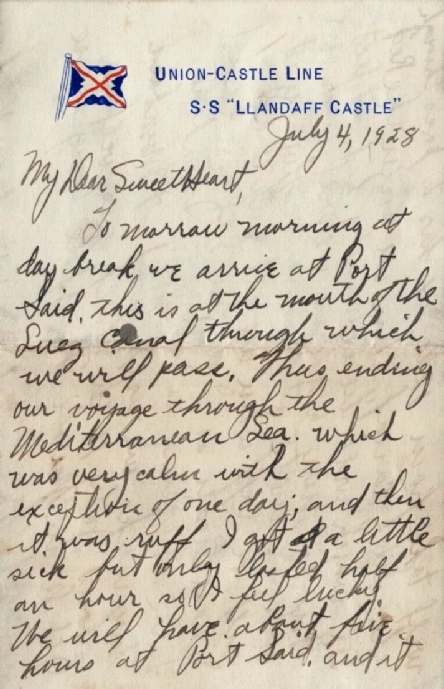 UNION-CASTLE LINE
S·S "LLANDAFF CASTLE"
July 4, 1928
My Dear SweetHeart,
To morrow morning at
day break, we arrive at Port
Said. this is at the mouth of the
Suez Canal through which
we will pass. Thus ending
our voyage through the
Mediterranean Sea. which
was very calm with the
exception of one day, and then
it was ruff I got a little
sick but only lasted half
an hour so I feel lucky
We will have about five
hours at Port Said. and it